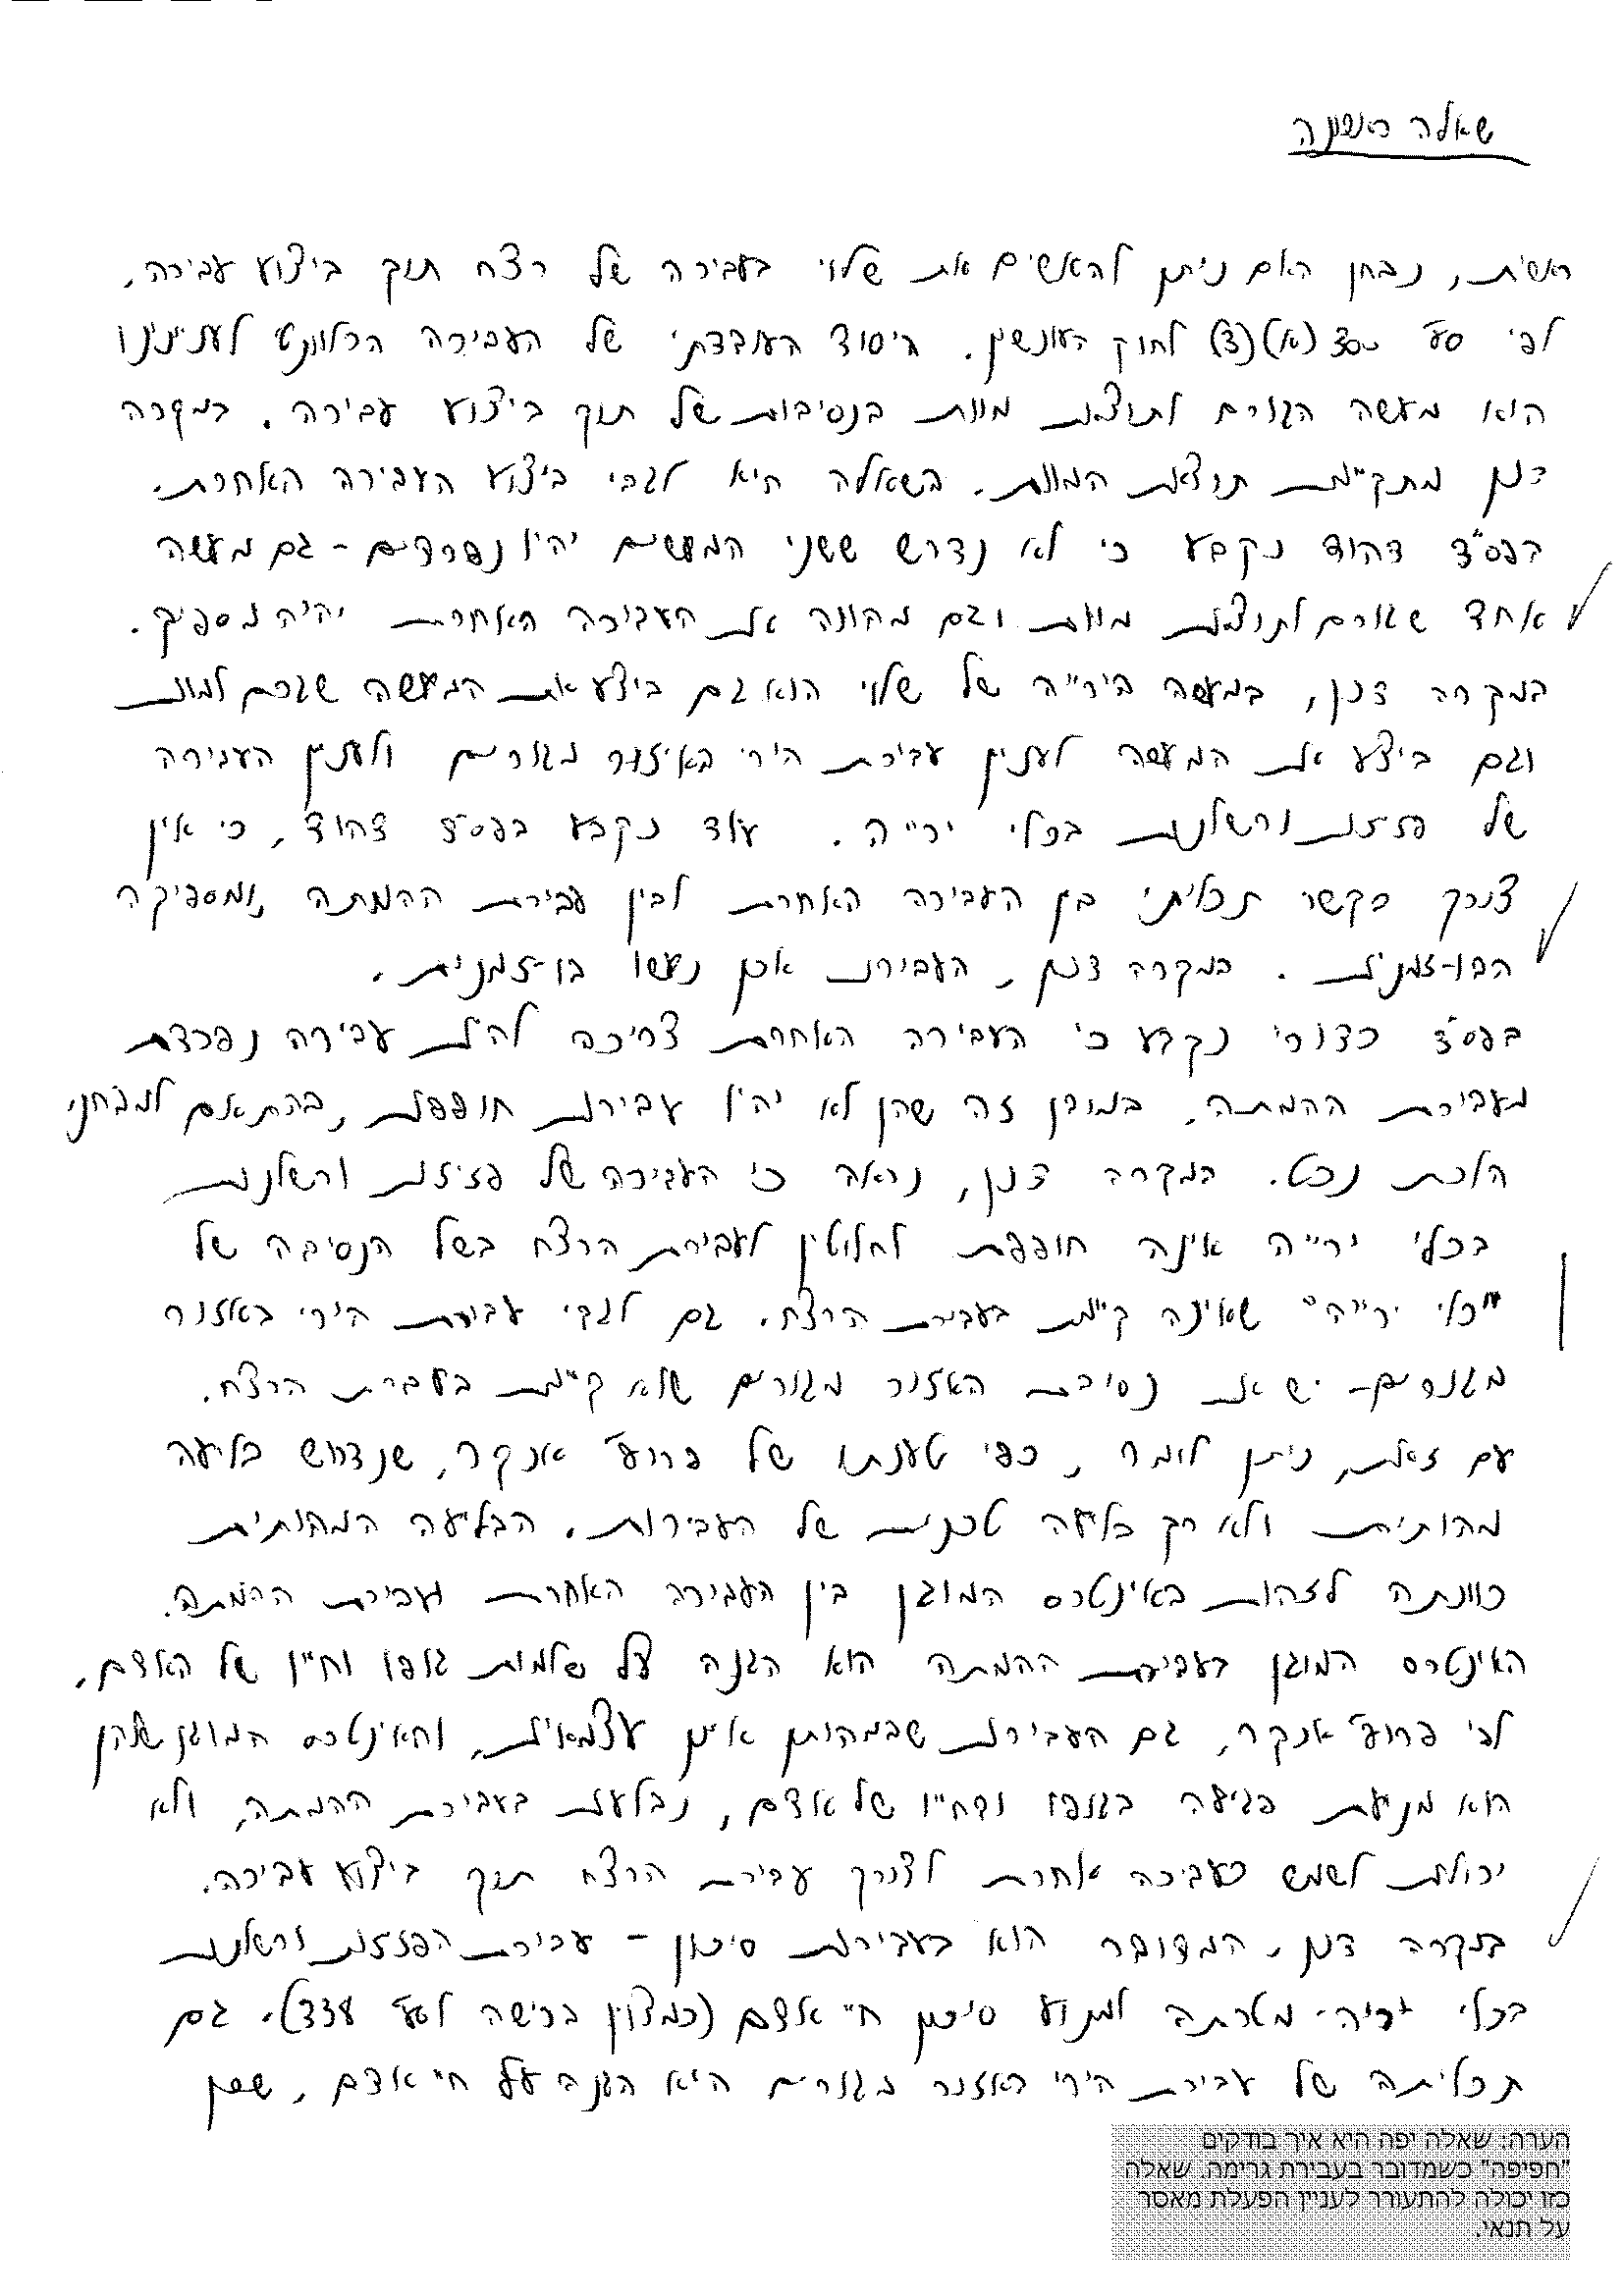 שאלה ראשונה
ראשית, נבחן האם ניתן להאשים את שלוי בעבירה של רצח תוך ביצוע עבירה,
לפי סע' 300(א)(3) לחוק העונשין. היסוד העובדתי של העבירה הרלוונטי לענייננו
הוא מעשה הגורם לתוצאת מוות בנסיבות של תוך ביצוע עבירה. במקרה
דנן מתקיימת תוצאת המוות. השאלה היא לגבי ביצוע העבירה האחרת.
בפס"ד דהוד נקבע כי לא נדרש ששני המעשים יהיו נפרדים - גם מעשה
אחד שגורם לתוצאת מוות וגם מהווה את העבירה האחרת יהיה מספיק.
במקרה דנן, במעשה הירייה של שלוי הוא גם ביצע את המעשה שגרם למוות
וגם ביצע את המעשה לעניין עבירת הירי באיזור מגורים ולעניין העבירה
של פזיזות ורשלנות בכלי ירייה. עוד נקבע בפס"ד דהוד, כי אין
צורך בקשר תכליתי בין העבירה האחרת לבין עבירת ההמתה, ומספיקה
הבו-זמניות. במקרה דנן, העבירות אכן נעשו בו-זמנית.
בפס"ד כדורי נקבע כי העבירה האחרת צריכה להיות עבירה נפרדת
מעבירת ההמתה, במובן זה שהן לא יהיו עבירות חופפות, בהתאם למבחני
הלכת נכט. במקרה דנן, נראה כי העבירה של פזיזות ורשלנות
בכלי ירייה אינה חופפת לחלוטין לעבירת הרצח בשל הנסיבה של
"כלי ירייה" שאינה קיימת בעבירת הרצח. גם לגבי עבירת הירי באזור
מגורים - יש את נסיבת האזור מגורים שלא קיימת בעבירת הרצח.
עם זאת, ניתן לומר, כפי טענתו של פרופ' אנקר, שנדרש בליעה
מהותית ולא רק בליעה טכנית של העבירות. הבליעה המהותית
כוונתה לזהות באינטרס המוגן בין העבירה האחרת ועבירת ההמתה.
האינטרס המוגן בעבירת ההמתה הוא הגנה על שלמות גופו וחייו של האדם.
לפי פרופ' אנקר, גם העבירות שבמהותן אינן עצמאיות, והאינטרס המוגן שלהן
הוא מניעת פגיעה בגופו ובחייו של אדם, נבלעות בעבירת ההמתה, ולא
יכולות לשמש כעבירה אחרת לצורך עבירת הרצח תוך ביצוע עבירה.
במקרה דנן, המדובר הוא בעבירות סיכון - עבירת הפזיזות ורשלנות
בכלי ירייה - מטרתה למנוע סיכון חיי אדם (כמצוין ברישה לסע' 338). גם
תכליתה של עבירת הירי באזור מגורים היא הגנה על חיי אדם, שכן
הערה: שאלה יפה היא איך בודקים
"חפיפה" כשמדובר בעבירת גרימה. שאלה
כזו יכולה להתעורר לעניין הפעלת מאסר
על תנאי.